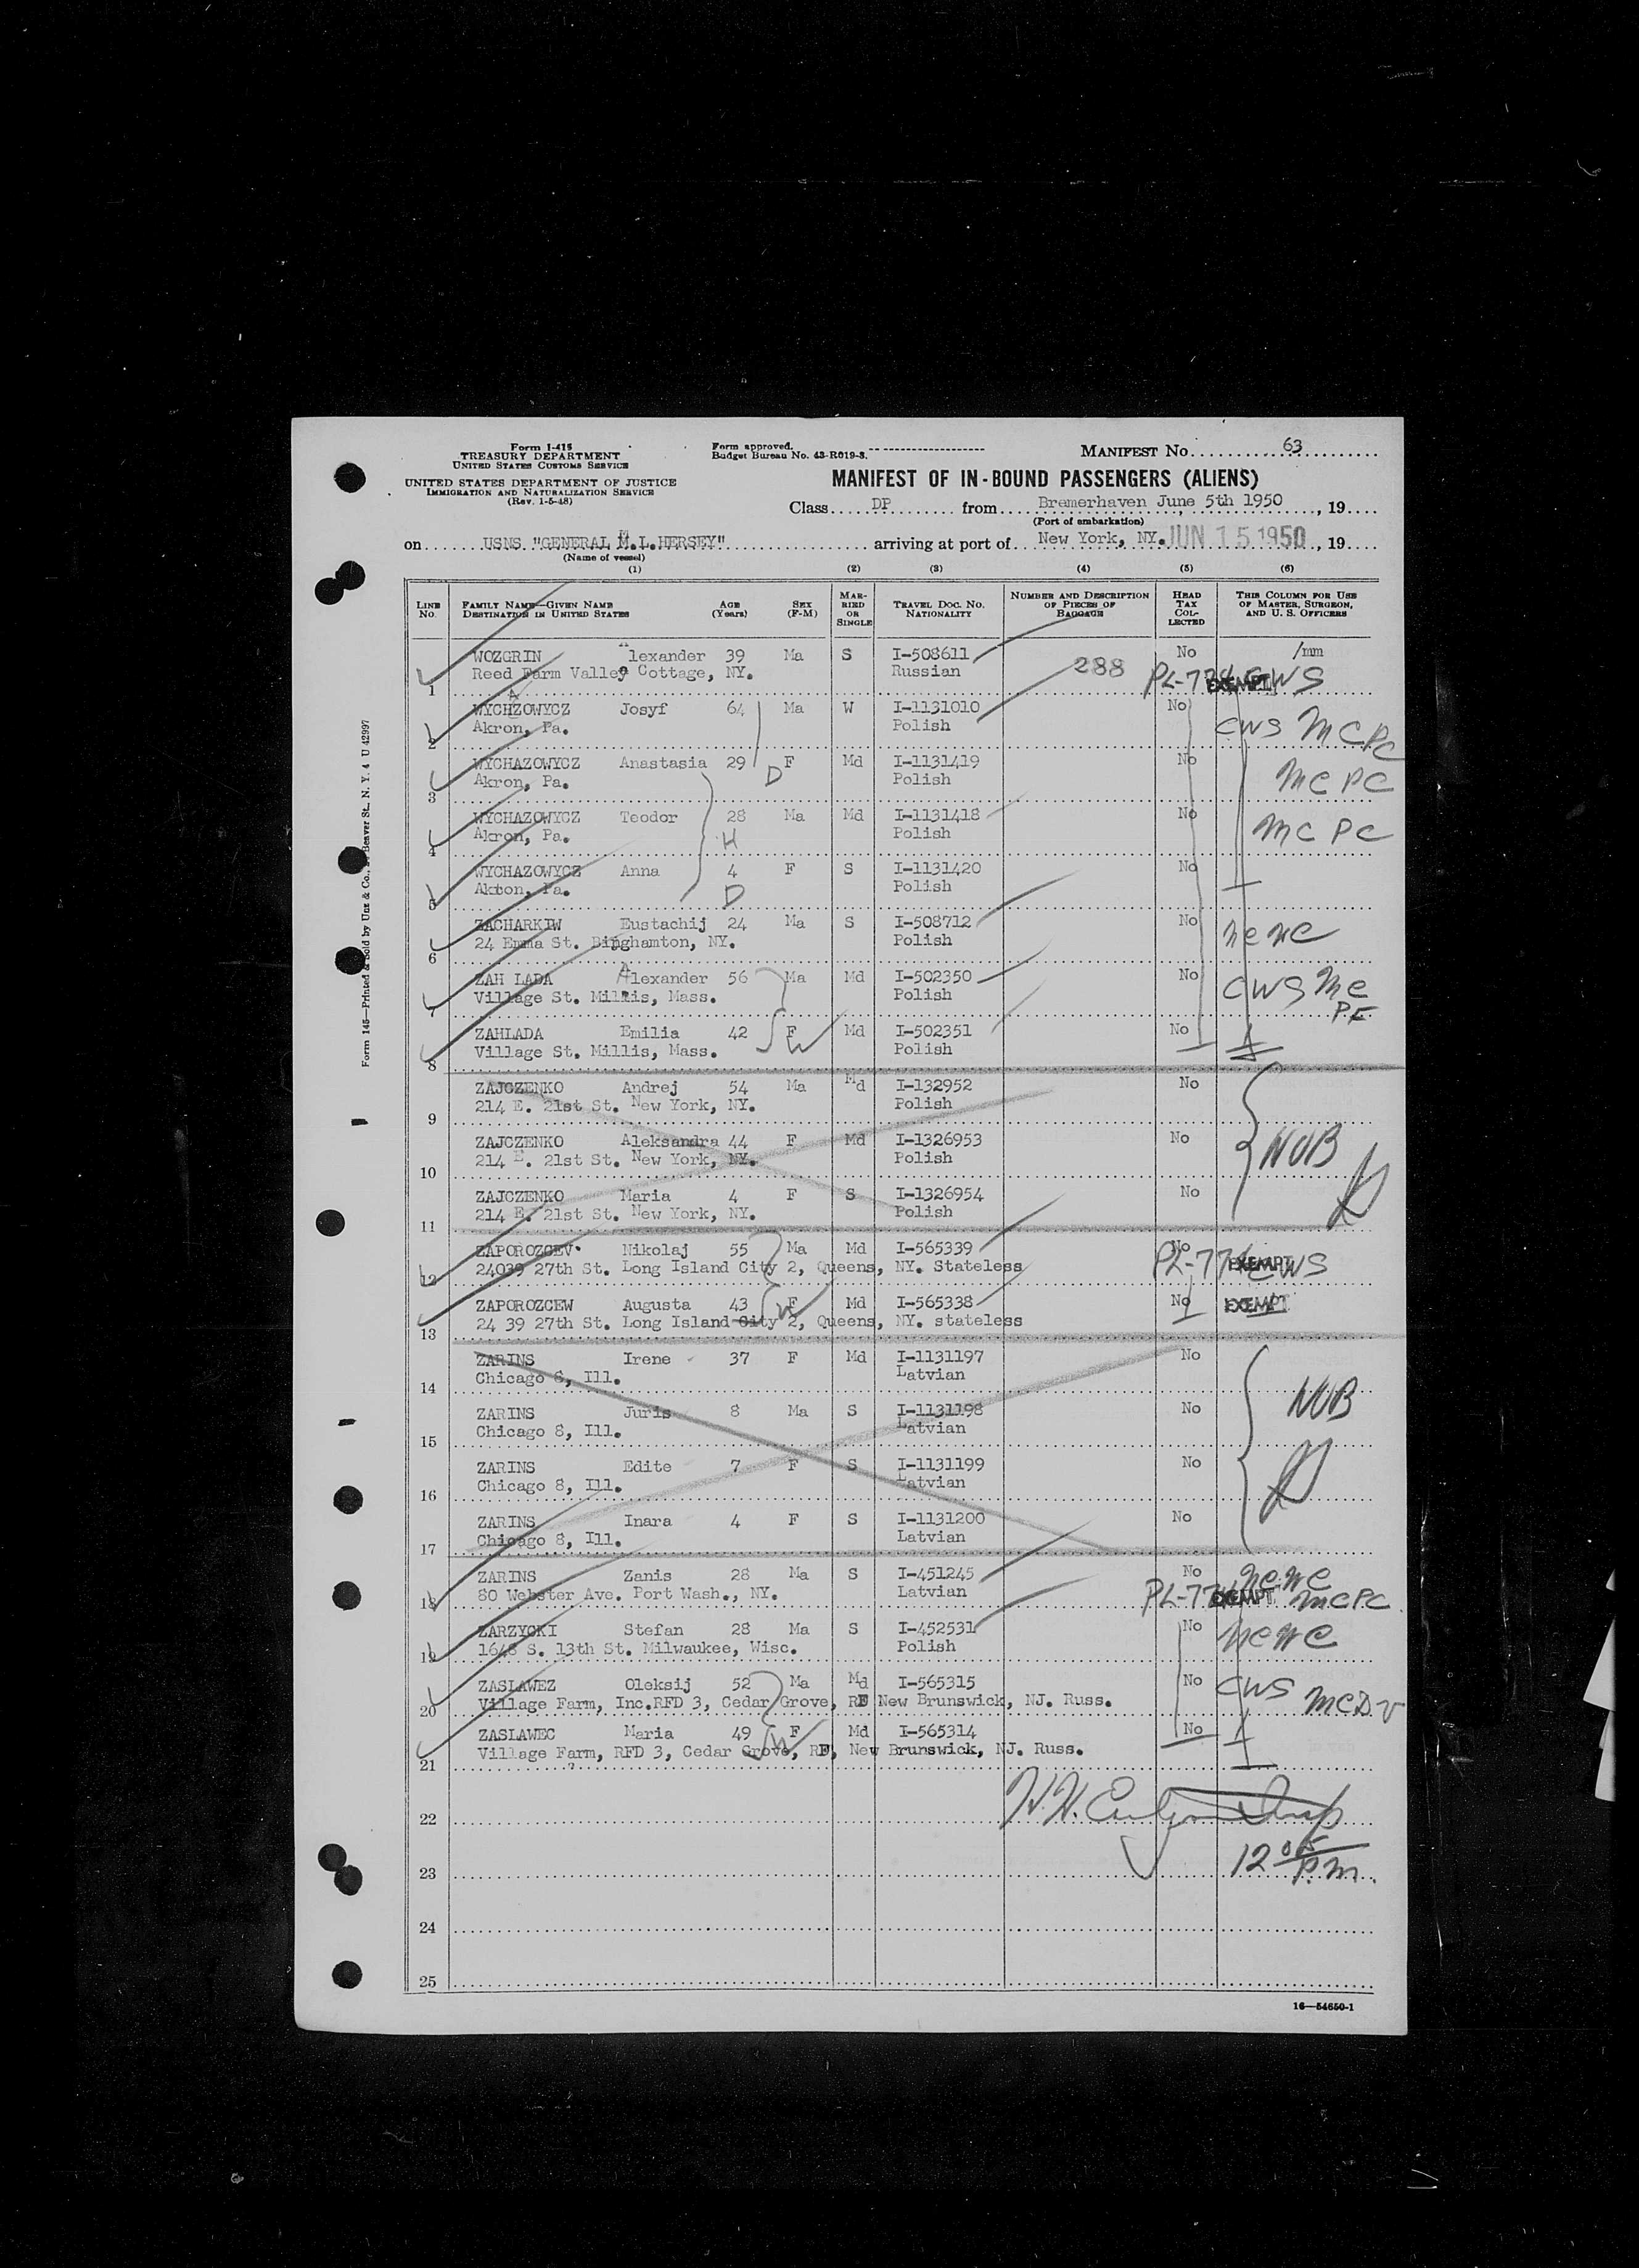 Form I-415
TREASURY DEPARTMENT
UNITED STATES CUSTOMS SERVICE
UNITED STATES DEPARTMENT OF JUSTICE
IMMIGRATION AND NATURALIZATION SERVICE
(Rev. 1-5-48)
Form approved.
Budget Bureau No. 43-R019-3.
MANIFEST No. 63
MANIFEST OF IN-BOUND PASSENGERS (ALIENS)
Class DP from Bremerhaven June 5th 1950, 19
(Port of embarkation)
on USNS "GENERAL M.L.HERSEY" arriving at port of New York, NY. JUN 15 1950, 19
(Name of vessel)
(1) (2) (3) (4) (5) (6)
LINE No. FAMILY NAME—GIVEN NAME DESTINATION IN UNITED STATES AGE (Years) SEX (F-M) MARRIED OR SINGLE TRAVEL DOC. NO. NATIONALITY NUMBER AND DESCRIPTION OF PIECES OF BAGGAGE HEAD TAX COLLECTED THIS COLUMN FOR USE OF MASTER, SURGEON, AND U. S. OFFICERS
WOZGRIN Alexander 39 Ma S I-508611 No /mm
1 Reed Farm Valley Cottage, NY. Russian 288 PL-774 EXEMPT CWS
WYCHZOWYCZ Josyf 64 Ma W I-1131010 No
2 Akron, Pa. Polish CWS MCPC
WYCHAZOWYCZ Anastasia 29 F Md I-1131419 No
3 Akron, Pa. D Polish MCPC
WYCHAZOWYCZ Teodor 28 Ma Md I-1131418 No
4 Akron, Pa. H Polish MCPC
WYCHAZOWYCZ Anna 4 F S I-1131420 No
5 Akton, Pa. D Polish
ZACHARKIW Eustachij 24 Ma S I-508712 No
6 24 Emma St. Binghamton, NY. Polish
ZAH LADA Alexander 56 Ma Md I-502350 No
7 Village St. Millis, Mass. Polish CWS MC
ZAHLADA Emilia 42 F Md I-502351 No
8 Village St. Millis, Mass. W Polish
ZAJCZENKO Andrej 54 Ma Md I-132952 No
9 214 E. 21st St. New York, NY. Polish
ZAJCZENKO Aleksandra 44 F Md I-1326953 No
10 214 E. 21st St. New York, NY. Polish NOB
ZAJCZENKO Maria 4 F S I-1326954 No
11 214 E. 21st St. New York, NY. Polish
ZAPOROZCEV Nikolaj 55 Ma Md I-565339 No
12 24039 27th St. Long Island City 2, Queens, NY. Stateless PL-774 EXEMPT CWS
ZAPOROZCEW Augusta 43 F Md I-565338 No EXEMPT
13 24 39 27th St. Long Island City 2, Queens, NY. stateless
ZARINS Irene 37 F Md I-1131197 No
14 Chicago 8, Ill. Latvian NOB
ZARINS Juris 8 Ma S I-1131198 No
15 Chicago 8, Ill. Latvian
ZARINS Edite 7 F S I-1131199 No
16 Chicago 8, Ill. Latvian
ZARINS Inara 4 F S I-1131200 No
17 Chicago 8, Ill. Latvian
ZARINS Zanis 28 Ma S I-451245 No
18 80 Webster Ave. Port Wash., NY. Latvian PL-774 EXEMPT MCPC
ZARZYCKI Stefan 28 Ma S I-452531 No
19 1648 S. 13th St. Milwaukee, Wisc. Polish
ZASLAWEZ Oleksij 52 Ma Md I-565315 No CWS
20 Village Farm, Inc.RFD 3, Cedar Grove, RF New Brunswick, NJ. Russ.
ZASLAWEC Maria 49 F Md I-565314 No
21 Village Farm, RFD 3, Cedar Grove, RF, New Brunswick, NJ. Russ.
22
23 12 05 P.M.
24
25
16—54650-1
Form 145—Printed & Sold by Unz & Co., Beaver St., N. Y. 4 U 42997